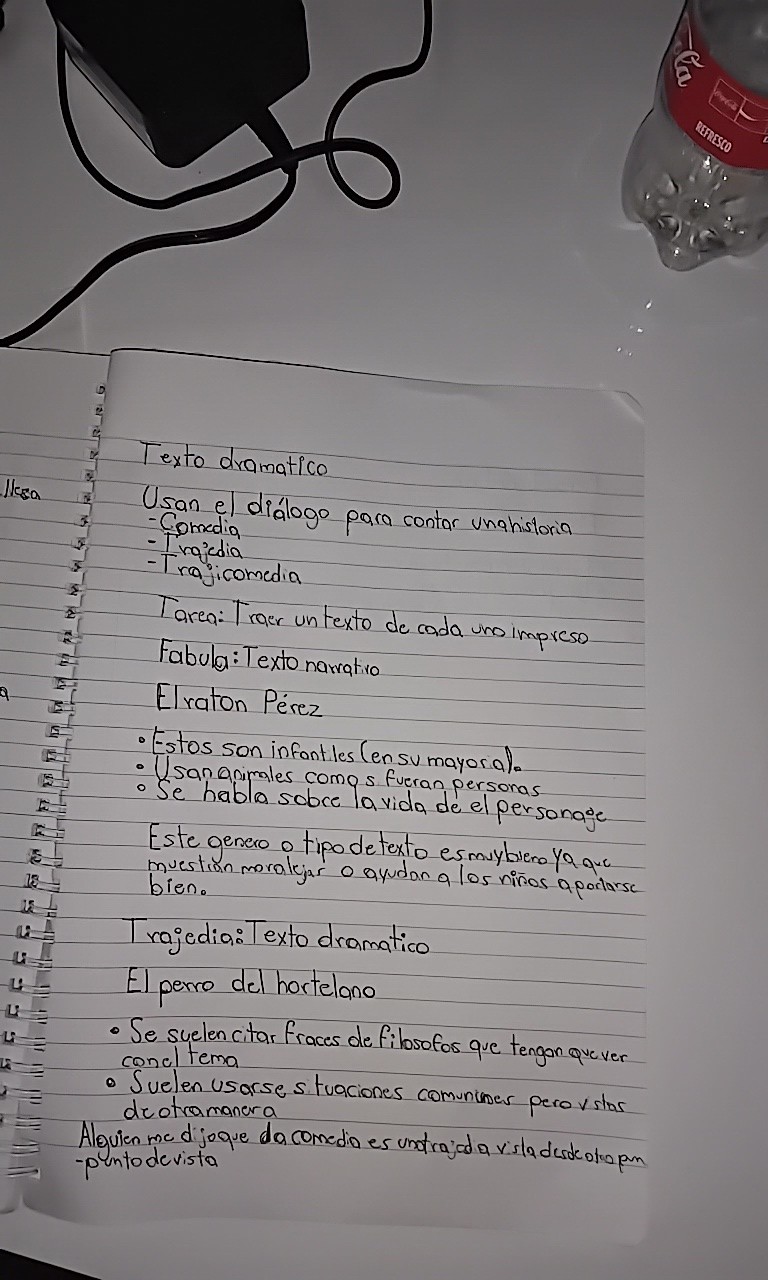 la
REFRESCO
llesa
a
Texto dramatico
Usan el diálogo para contar una historia
-Comedia
-Trajedia
-Trajicomedia
Tarea: Traer un texto de cada uno impreso
Fabula: Texto narrativo
El raton Pérez
• Estos son infantiles (en su mayoria).
• Usan animales como s fueran personas
• Se habla sobre la vida de el personage
Este genero o tipo de texto es muy bueno ya que
muestran moralejar o ayudan a los niños a portarse
bien.
Trajedia: Texto dramatico
El perro del hortelano
• Se suelen citar fraces de filosofos que tengan que ver
con el tema
• Suelen usarse situaciones comunimes pero vistas
de otra manera
Alguien me dijo que da comedia es una trajedia vista desde otro pun
-punto de vista